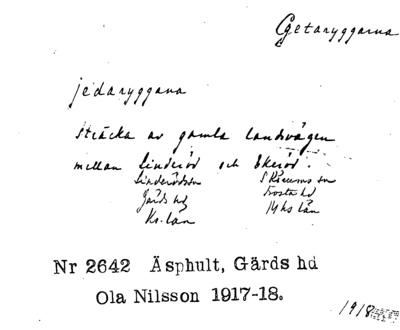 Getaryggarna
jedaryggana
sträcka av gamla landsvägen
mellan Linderöd och Ekeröd.
Linderödssn S Rörums sn
Gärds hd Frosta hd
Kr. län Mhs län
Nr 2642 Äsphult, Gärds hd
Ola Nilsson 1917-18.
1918